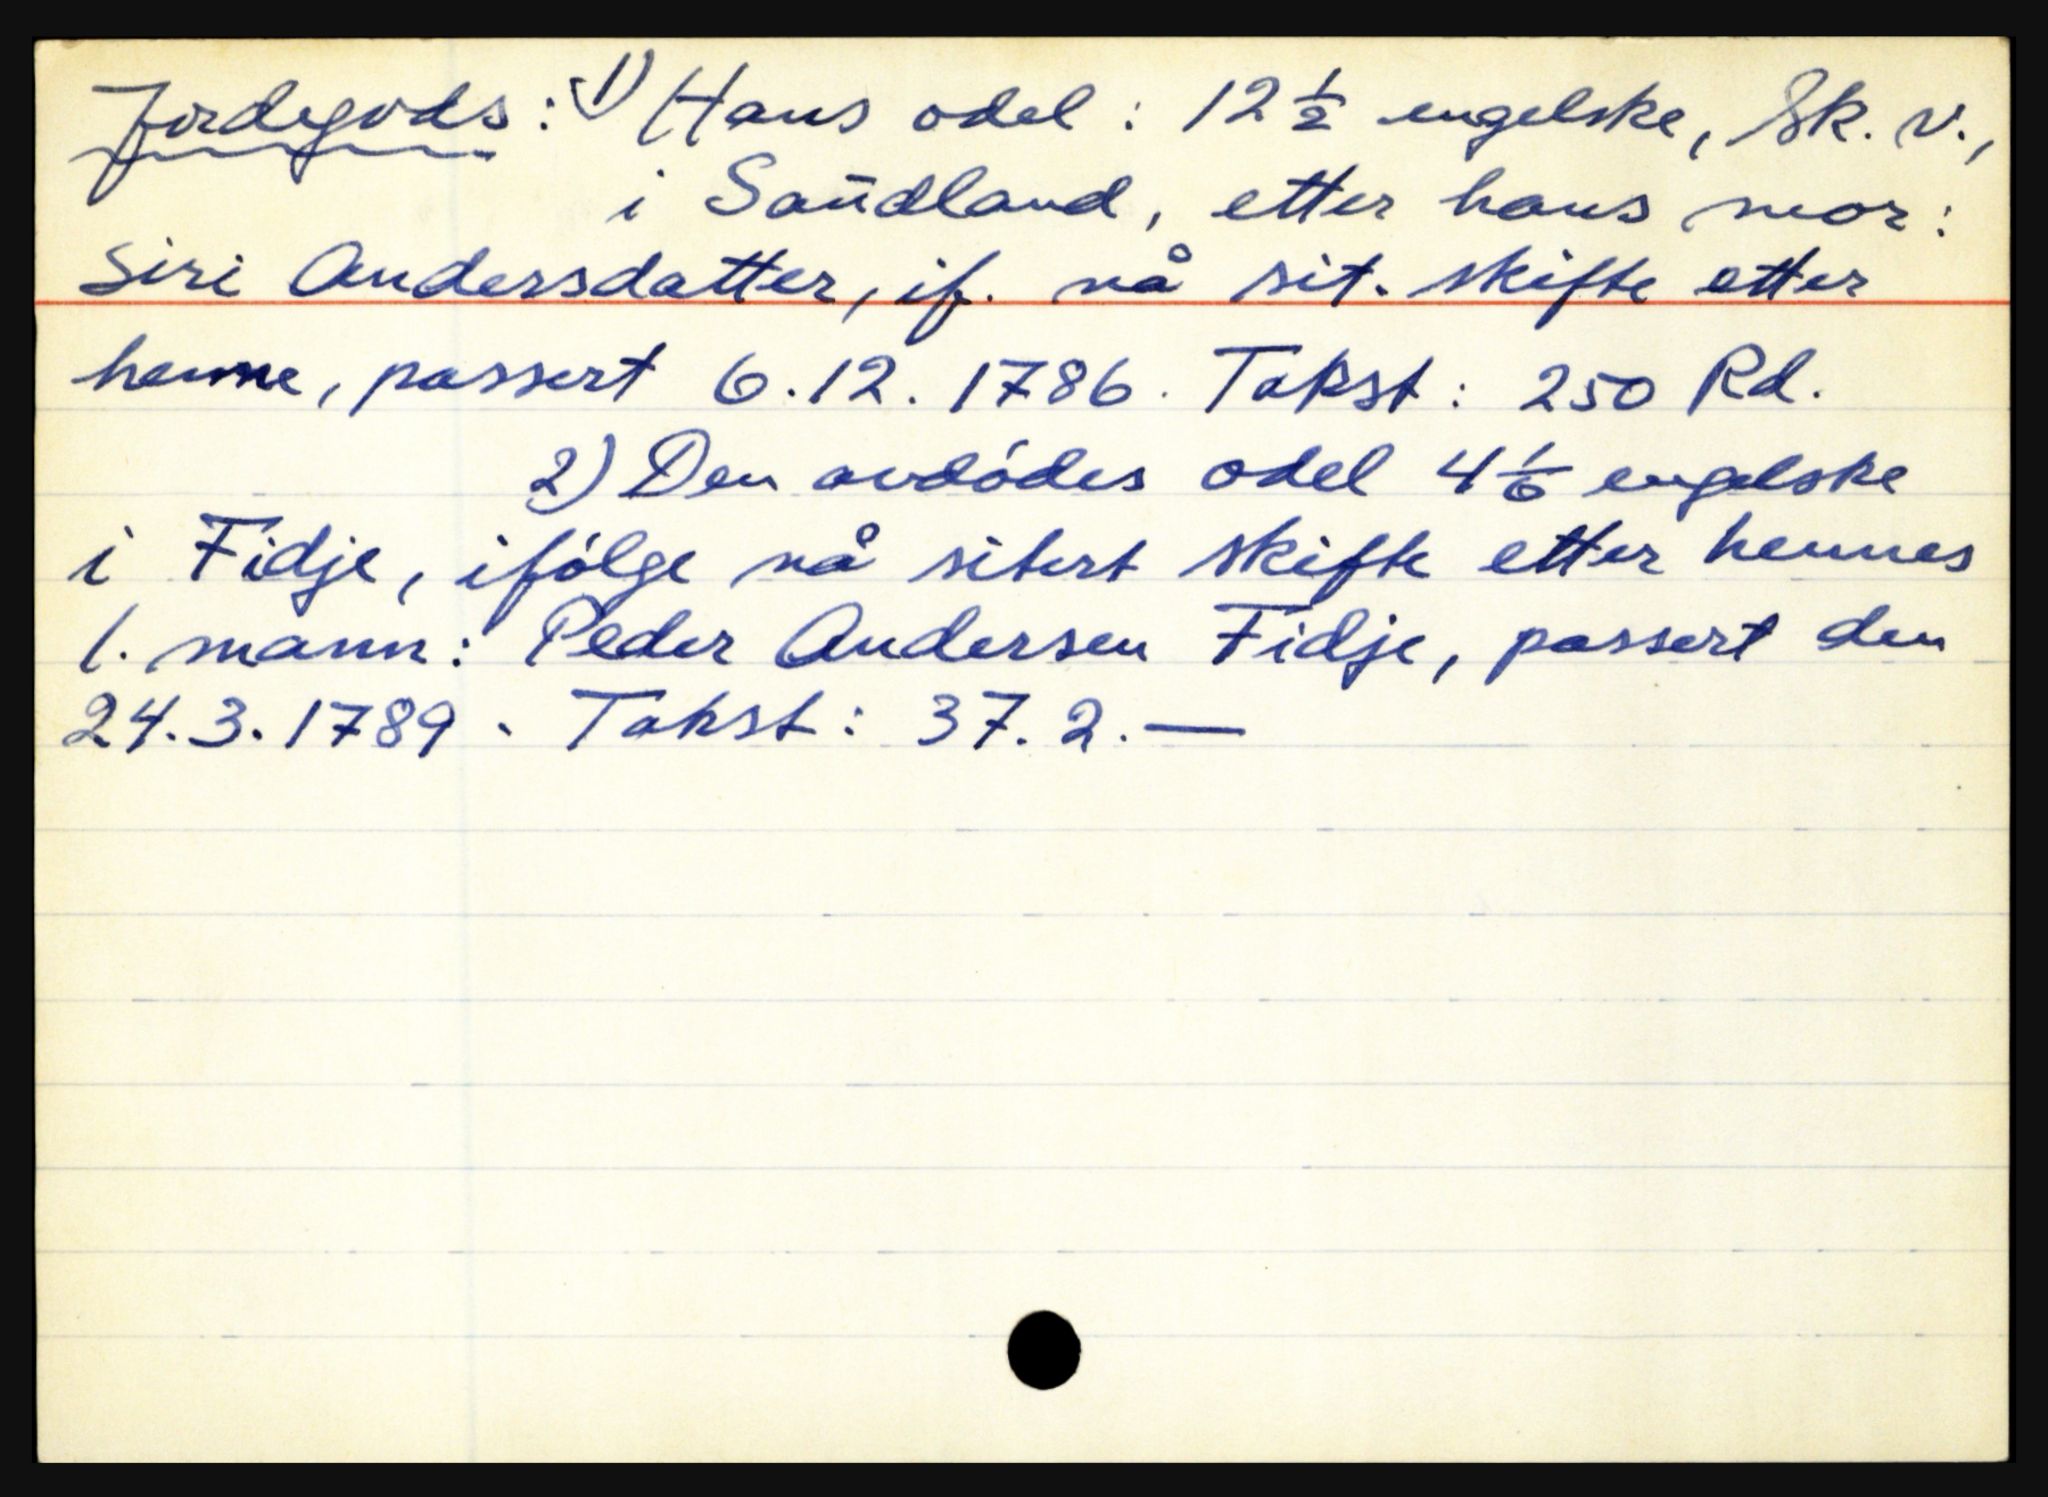 Jordegods: 1) Hans odel: 12 1/2 engelske, Sk. v.,
i Saŭdland, etter hans mor:
Siri Andersdatter, if. nå sit. skifte etter
henne, passert 6.12.1786. Takst: 250 Rd.
2) Den avdódes odel 4 1/6 engelske
i Fidje, ifólge nå sitert skifte etter hennes
1. mann: Peder Andersen Fidje, passert den
24.3.1789. Takst: 37.2.—